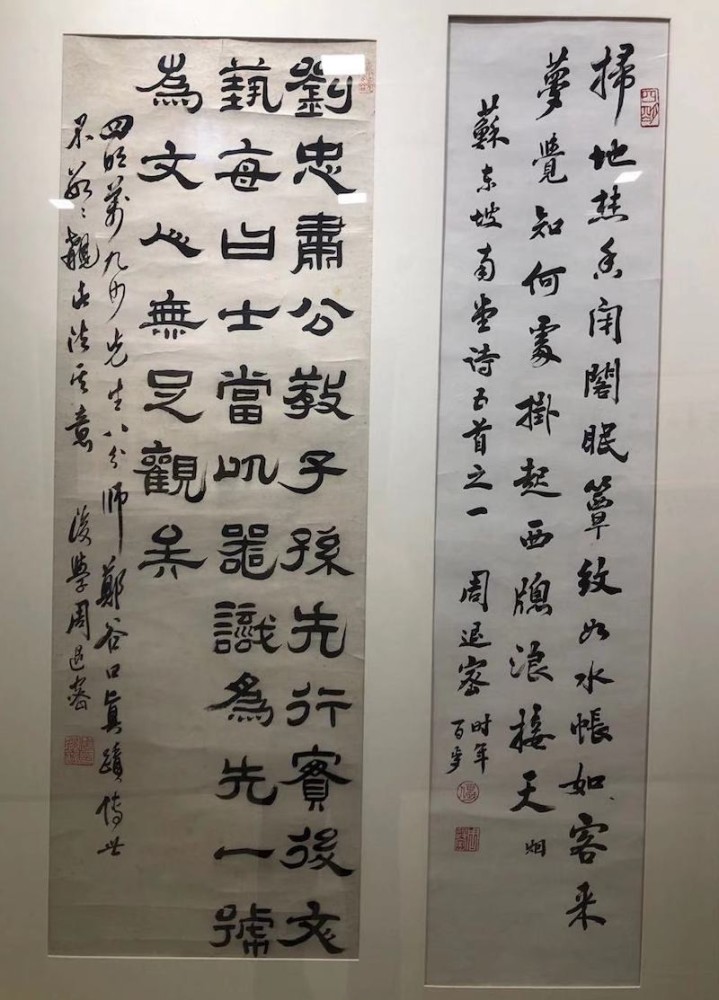 掃地焚香闭閣眠簟紋如水帳如客来
夢覺知何處掛起西牕浪接天 烟
蘇东坡南堂诗五首之一 周退密 时年百岁
劉忠肅公教子孫先行實後文
藝每曰士當以器識為先一號
為文人無足觀矣
四明萬九沙先生八分師鄭谷口真蹟傳世
不數〻覯此法其意 後學周退密